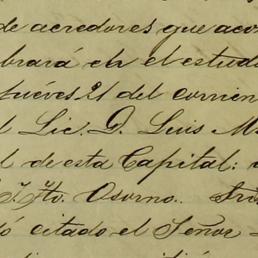 de acredores que acor
brará en el estudi
jueves 21 del corrien
l Lic. D. Luis M
l de esta Capital:
Osorno.
ó citado el Señor